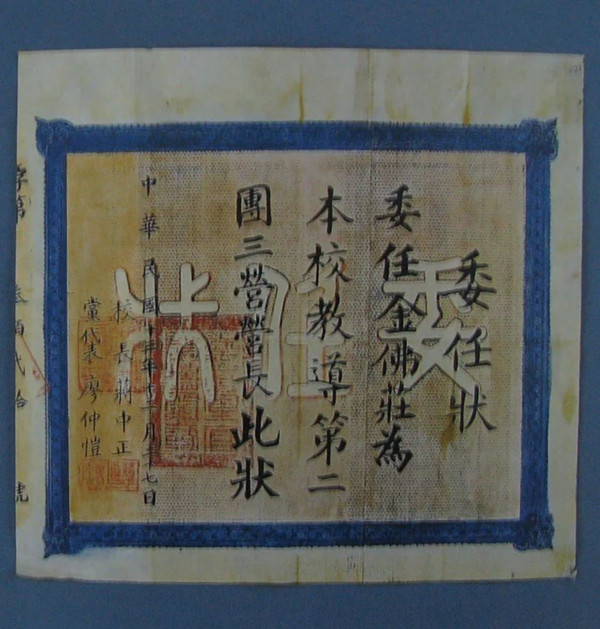 委任狀
委任金佛莊為
本校教導第二
團三營營長此狀
中華民國十三年十二月七日
校長蔣中正
黨代表廖仲愷
字第 叁百弍拾 號
委任狀